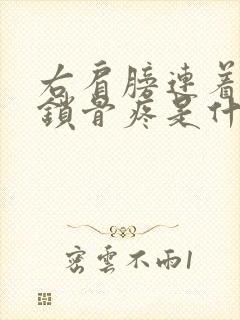 右肩膀連着
鎖骨疼是什
密雲不雨1